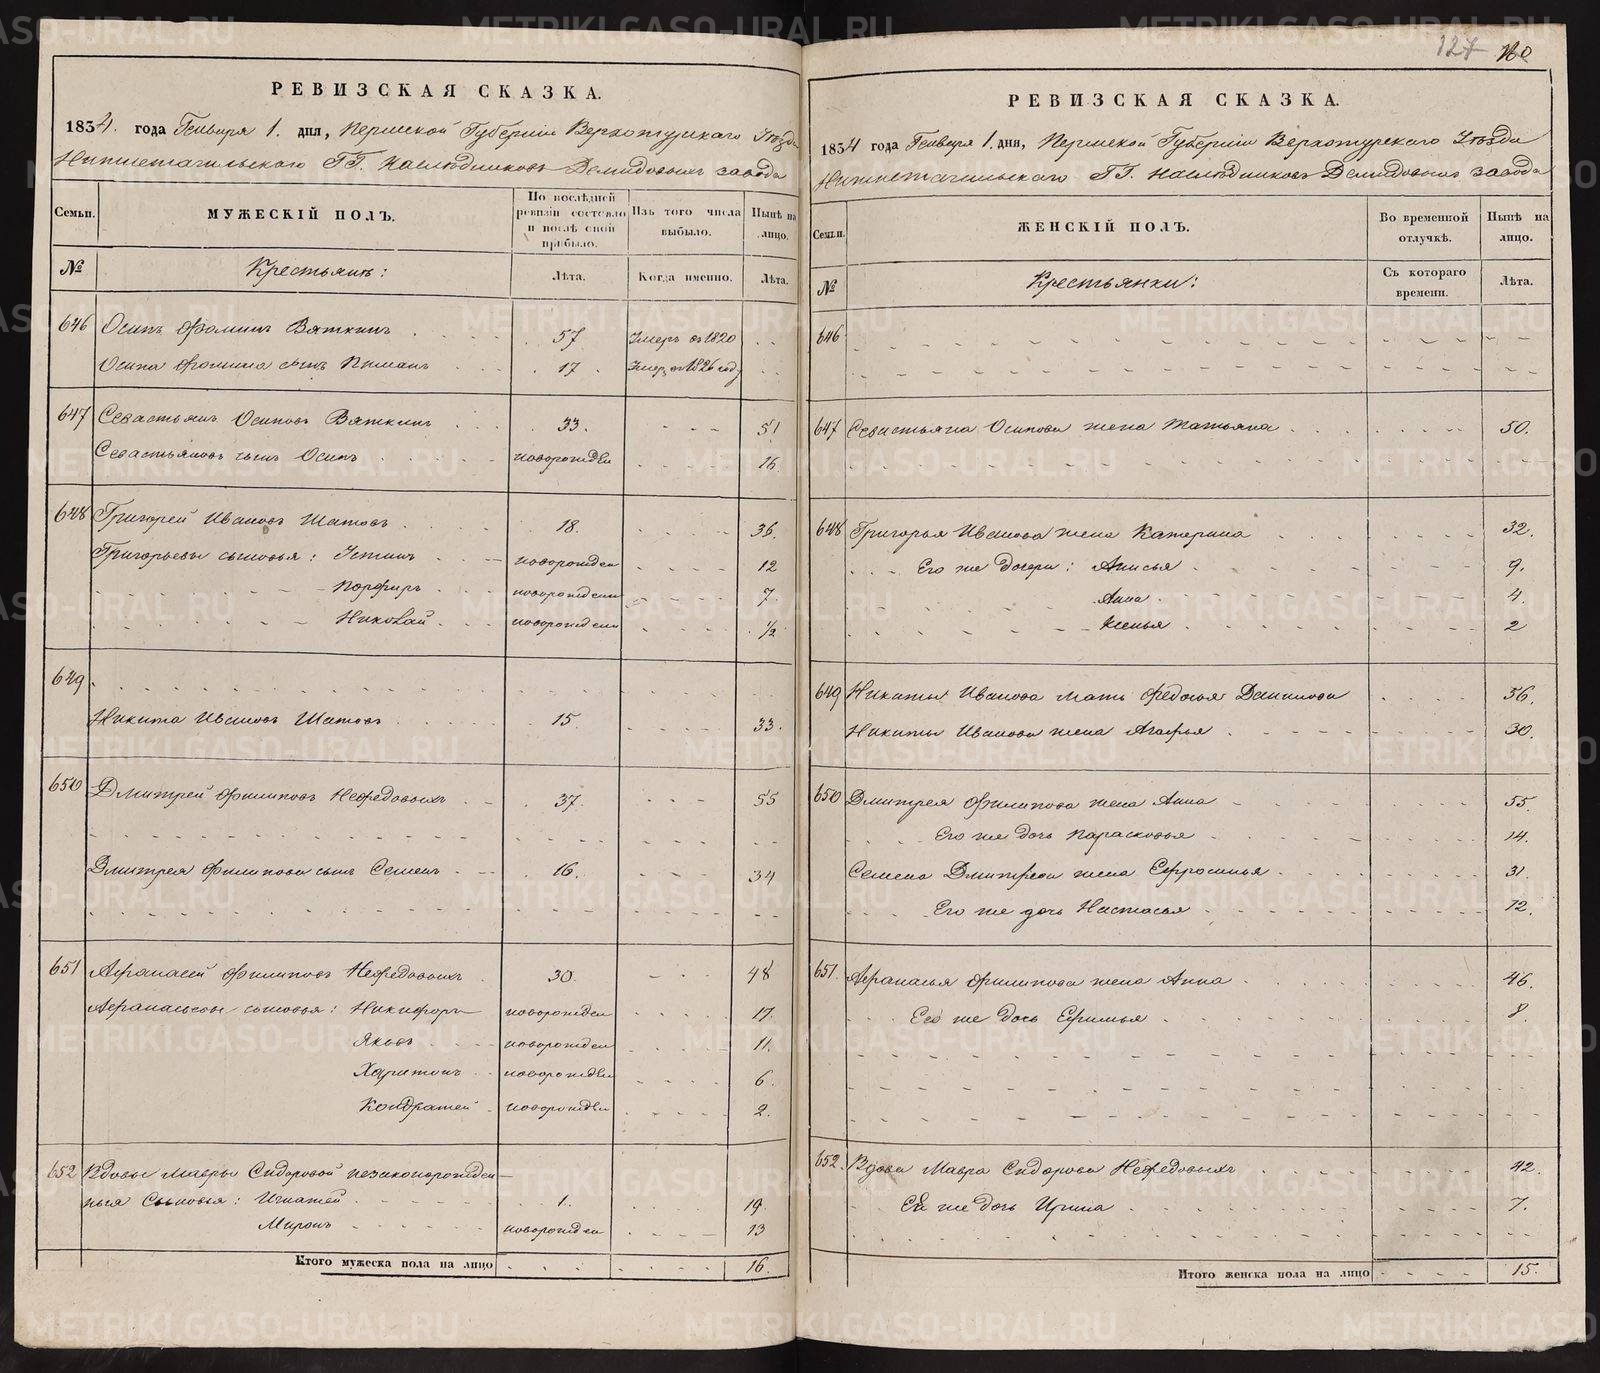 РЕВИЗСКАЯ СКАЗКА.
1834. года Генваря 1. дня, Пермской Губернiи Верхотурскаго Уѣзда
Нижнетагильскаго ГГ. Наслѣдниковъ Демидовыхъ завода
Семьи. МУЖЕСКIЙ ПОЛЪ. По послѣдней ревизiи состояло и послѣ оной прибыло. Изъ того числа выбыло. Нынѣ на лицо.
№ Крестьянъ: Лѣта. Когда именно. Лѣта.
646 Осипъ Фоминъ Вяткинъ 57 Умеръ въ 1820
Осипа Фомина сынъ Пиманъ 17 Умер. въ 1826 году
647 Севастьянъ Осиповъ Вяткинъ 33. 51
Севастьяновъ сынъ Осипъ новорожден 16
648 Григорей Ивановъ Шатовъ 18. 36.
Григорьевы сыновья: Устинъ новорожден 12
Порфиръ новорожденъ 7
Николай новорожденъ 1/2
649
Никита Ивановъ Шатовъ 15 33.
650 Дмитрей Филиповъ Нефедовыхъ 37. 55
Дмитрея Филипова сынъ Семенъ 16. 34
651 Афанасей Филиповъ Нефедовыхъ 30. 48
Афанасьевы сыновья: Никифоръ новорожден 17.
Яковъ новорожден 11.
Харитонъ новорожден 6.
Кондратей новорожден 2.
652 Вдовы Мавры Сидоровой незаконорожден-
ныя Сыновья: Игнатей 1. 19.
Миронъ новорожден 13
Итого мужеска пола на лицо 16.
127 120
РЕВИЗСКАЯ СКАЗКА.
1834 года Генваря 1. дня, Пермской Губернiи Верхотурскаго Уѣзда
Нижнетагильскаго ГГ. Наслѣдниковъ Демидовыхъ завода
Семьи. ЖЕНСКIЙ ПОЛЪ. Во временной отлучкѣ. Нынѣ на лицо.
№ Крестьянки: Съ котораго времени. Лѣта.
646
647 Севастьяна Осипова жена Татьяна 50.
648 Григорья Иванова жена Катерина 32.
Его же дочери: Анисья 9.
Анна 4.
Ксенья 2
649 Никиты Иванова мать Федосья Данилова 56.
Никиты Иванова жена Агафья 30.
650 Дмитрея Филипова жена Анна 55.
Его же дочь Парасковья 14.
Семена Дмитрева жена Ефросинья 31.
Его же дочь Настасья 12.
651. Афанасья Филипова жена Анна 46.
Его же дочь Ефимья 8.
652. Вдова Мавра Сидорова Нефедовыхъ 42.
Ея же дочь Ирина 7.
Итого женска пола на лицо 15.
METRIKI.GASO-URAL.RU